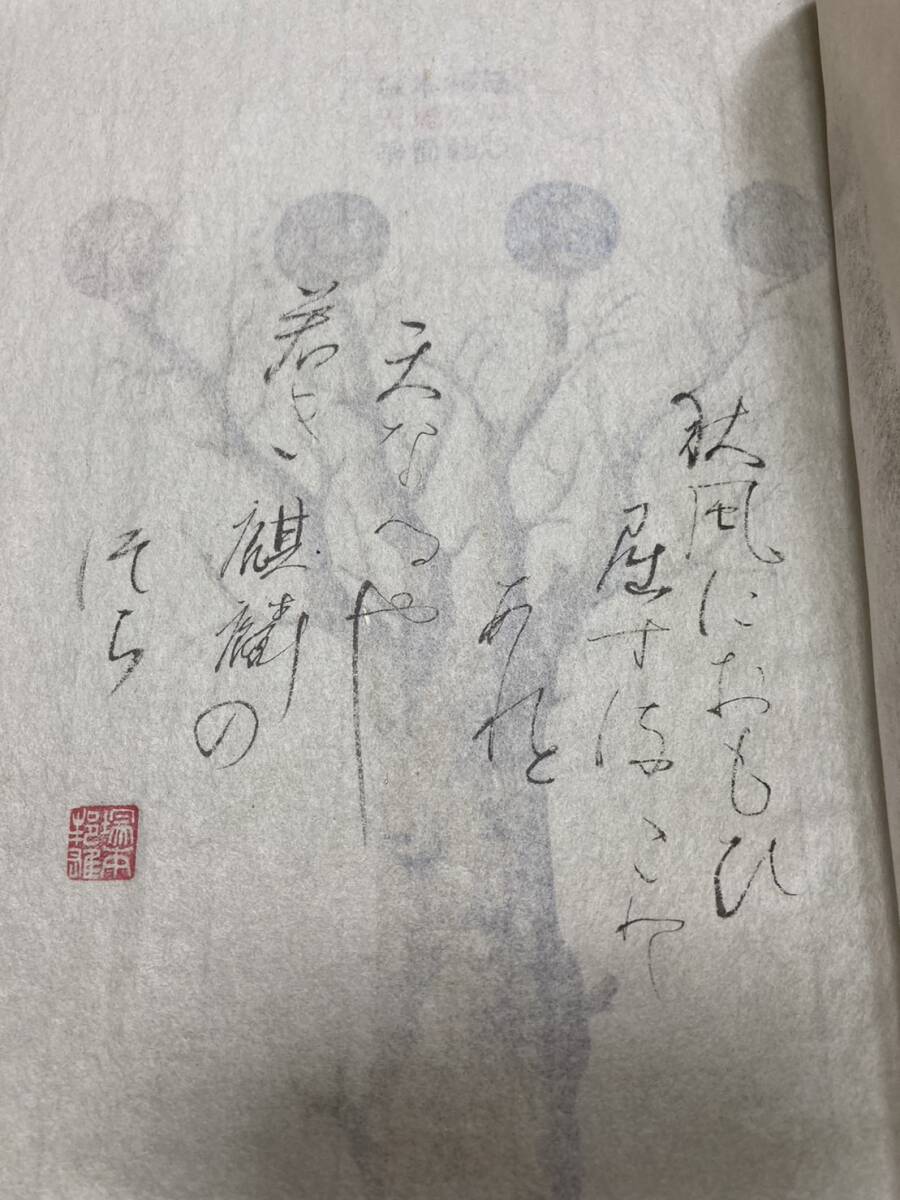 秋風におもひ
屈すること
あれと
天なるや
若き麒麟の
つら
塚本
邦雄